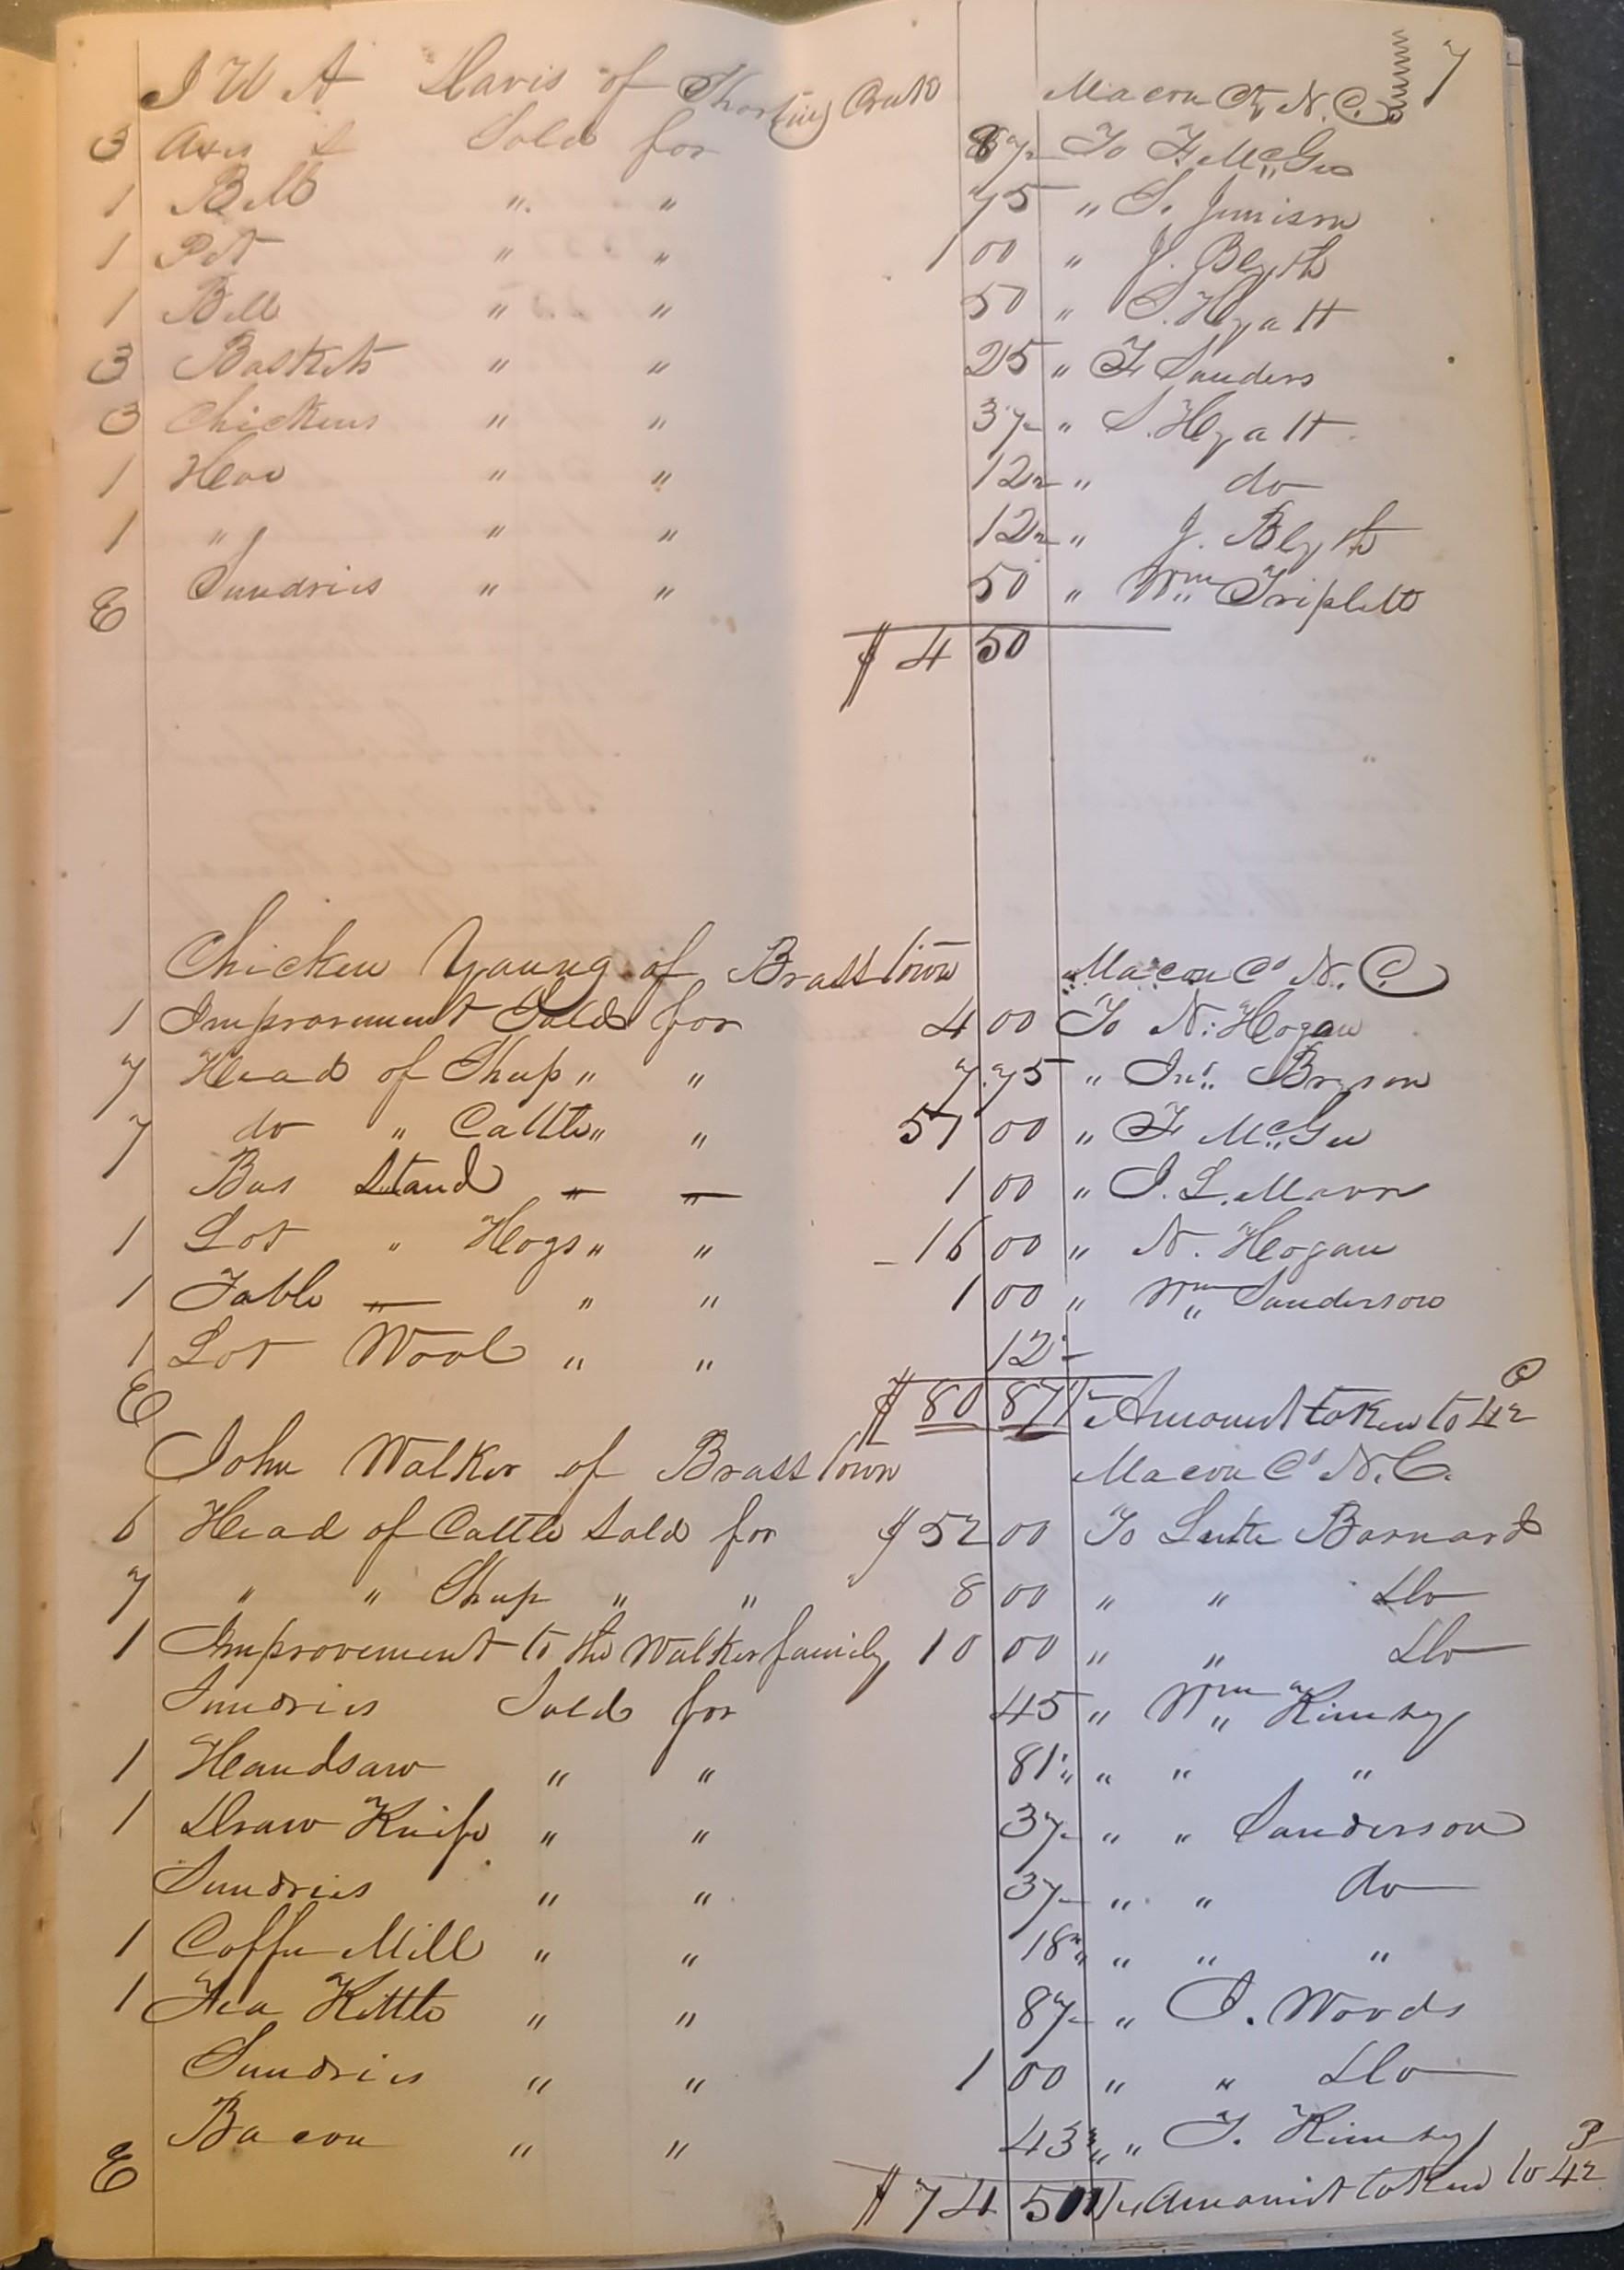 7
J W A Davis of Shooting Creek Macon Cty N. C.
3 Axes & Sold for 87½ To F McGee
1 Bell " " 75 " S. Jimison
1 Pot " " 1 00 " J. Blyth
1 Bell " " 50 " S. Hyatt
3 Baskets " " 25 " F Sanders
3 Chickens " " 37½ " S. Hyatt
1 Hoe " " 12½ " do
1 " " " 12½ " J. Blyth
Sundries " " 50 " Wm Triplett
E $ 4 50
Chicken Young of Brass Town Macon Co N. C.
1 Improvement Sold for 4 00 To N. Hogan
7 Head of Sheep " " 7.75 " Jno. Bryson
7 do " Cattle " " 51 00 " F McGee
Bee Stand " " 1 00 " I. L. Mann
1 Lot " Hogs " " 16 00 " N. Hogan
1 Table " " " 1 00 " Wm Sanderson
1 Lot Wool " " 12½
E $ 80 87½ Amount taken to P 42
John Walker of Brass Town Macon Co N. C.
6 Head of Cattle Sold for $ 52 00 To Lute Barnard
7 " " Sheep " " 8 00 " " Do
1 Improvement to the Walker family 10 00 " " Do
Sundries Sold for 45 " Wm Kimsey
1 Handsaw " " 81 " " "
1 Draw Knife " " 37½ " " Sanderson
Sundries " " 37½ " " do
1 Coffee Mill " " 18 " " "
1 Tea Kettle " " 87½ " J. Woods
Sundries " " 1 00 " " Do
Bacon " " 43 " T. Kimsey
E $ 74 50 Amount taken to P 42